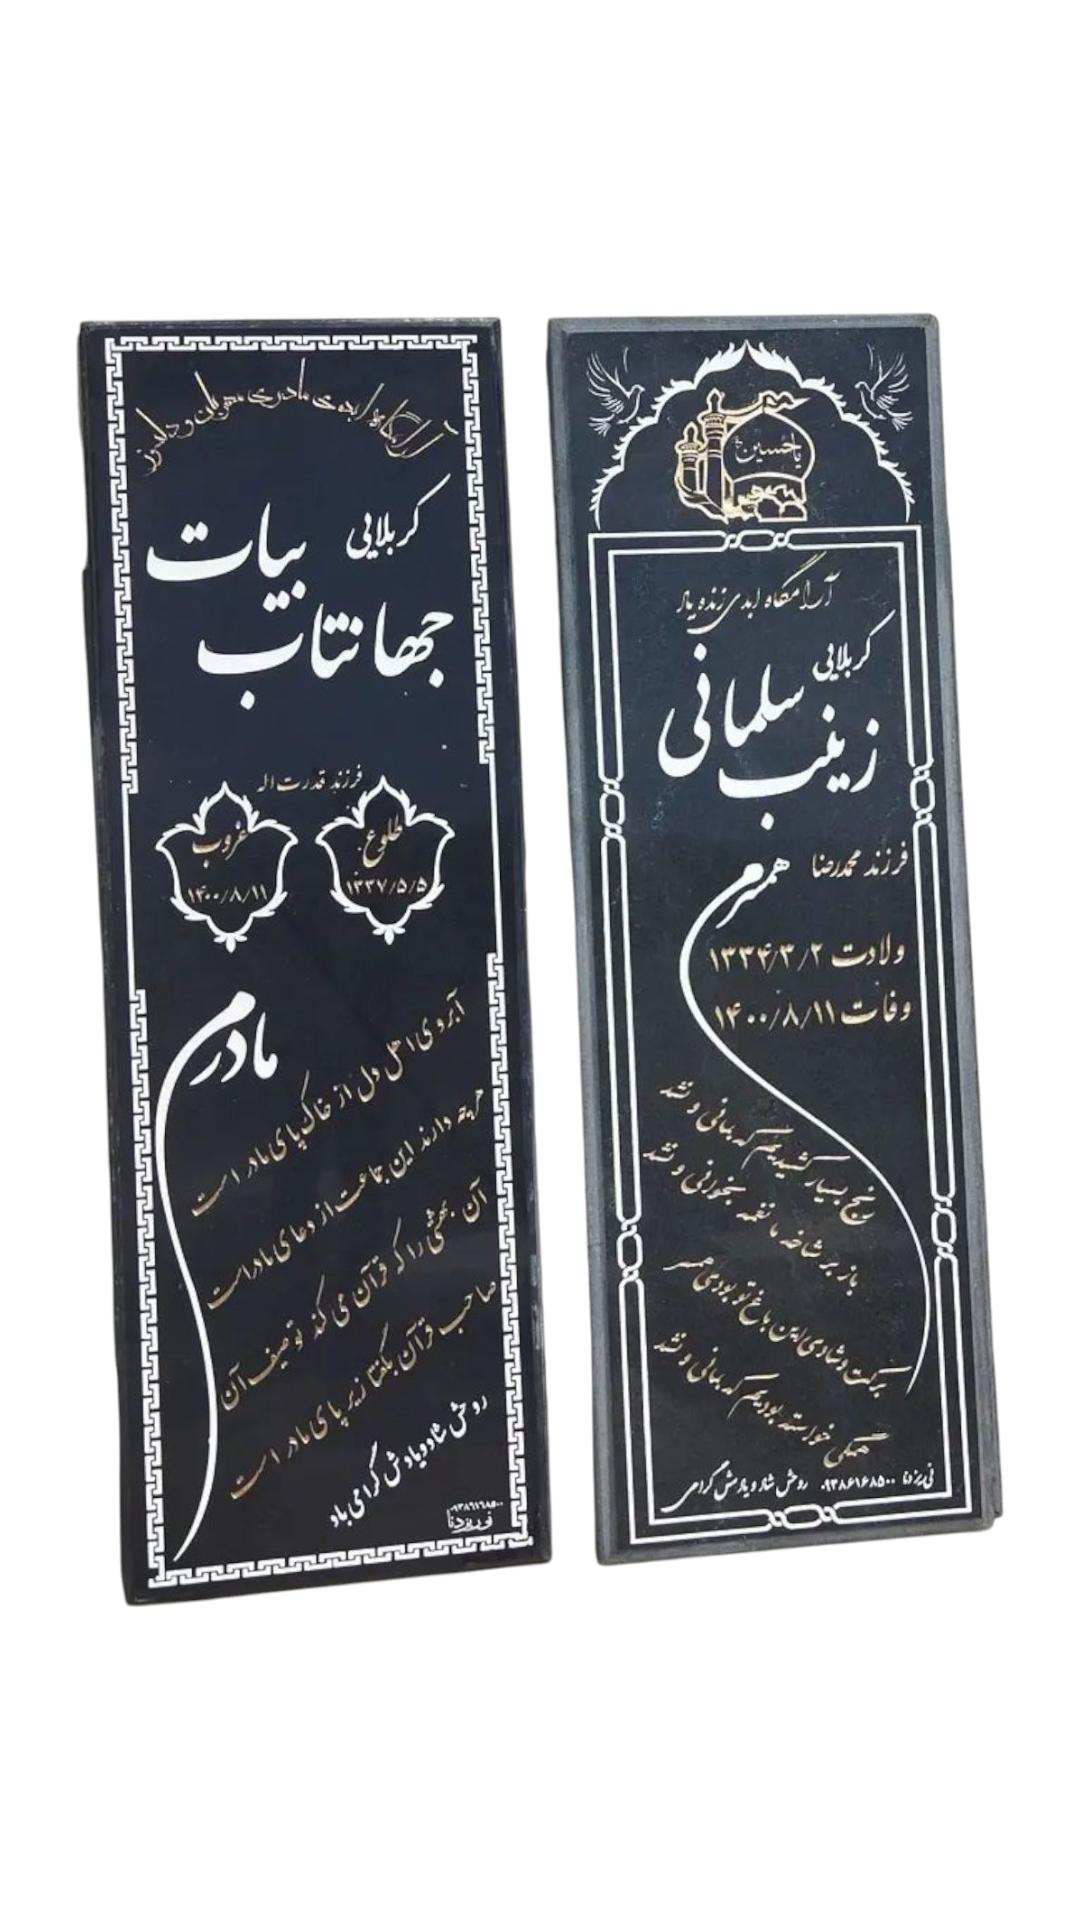 آرامگاه ابدی مادری مهربان و دلسوز
کربلایی
جهانتاب بیات
فرزند قدرت اله
طلوع
۱۳۳۷/۵/۵
غروب
۱۴۰۰/۸/۱۱
مادرم
آبروی اهل دل از خاک پای مادر است
هرچه دارند این جماعت از دعای مادر است
آن بهشتی را که قرآن می کند توصیف آن
صاحب قرآن بگفتا زیر پای مادر است
روحش شاد و یادش گرامی باد
۰۹۳۸۶۱۶۸۵۰۰
یا حسین
آرامگاه ابدی زنده یاد
کربلایی
زینب سلمانی
فرزند محمدرضا
همسرم
ولادت ۱۳۳۴/۳/۲
وفات ۱۴۰۰/۸/۱۱
رنج بسیار کشیدیم که بمانی و نشد
باز بر شاخه ما نغمه بخوانی و نشد
برکت و شادی این باغ تو بودی همسر
همگی خواسته بودیم که بمانی و نشد
روحش شاد و یادش گرامی ۰۹۳۸۶۱۶۸۵۰۰